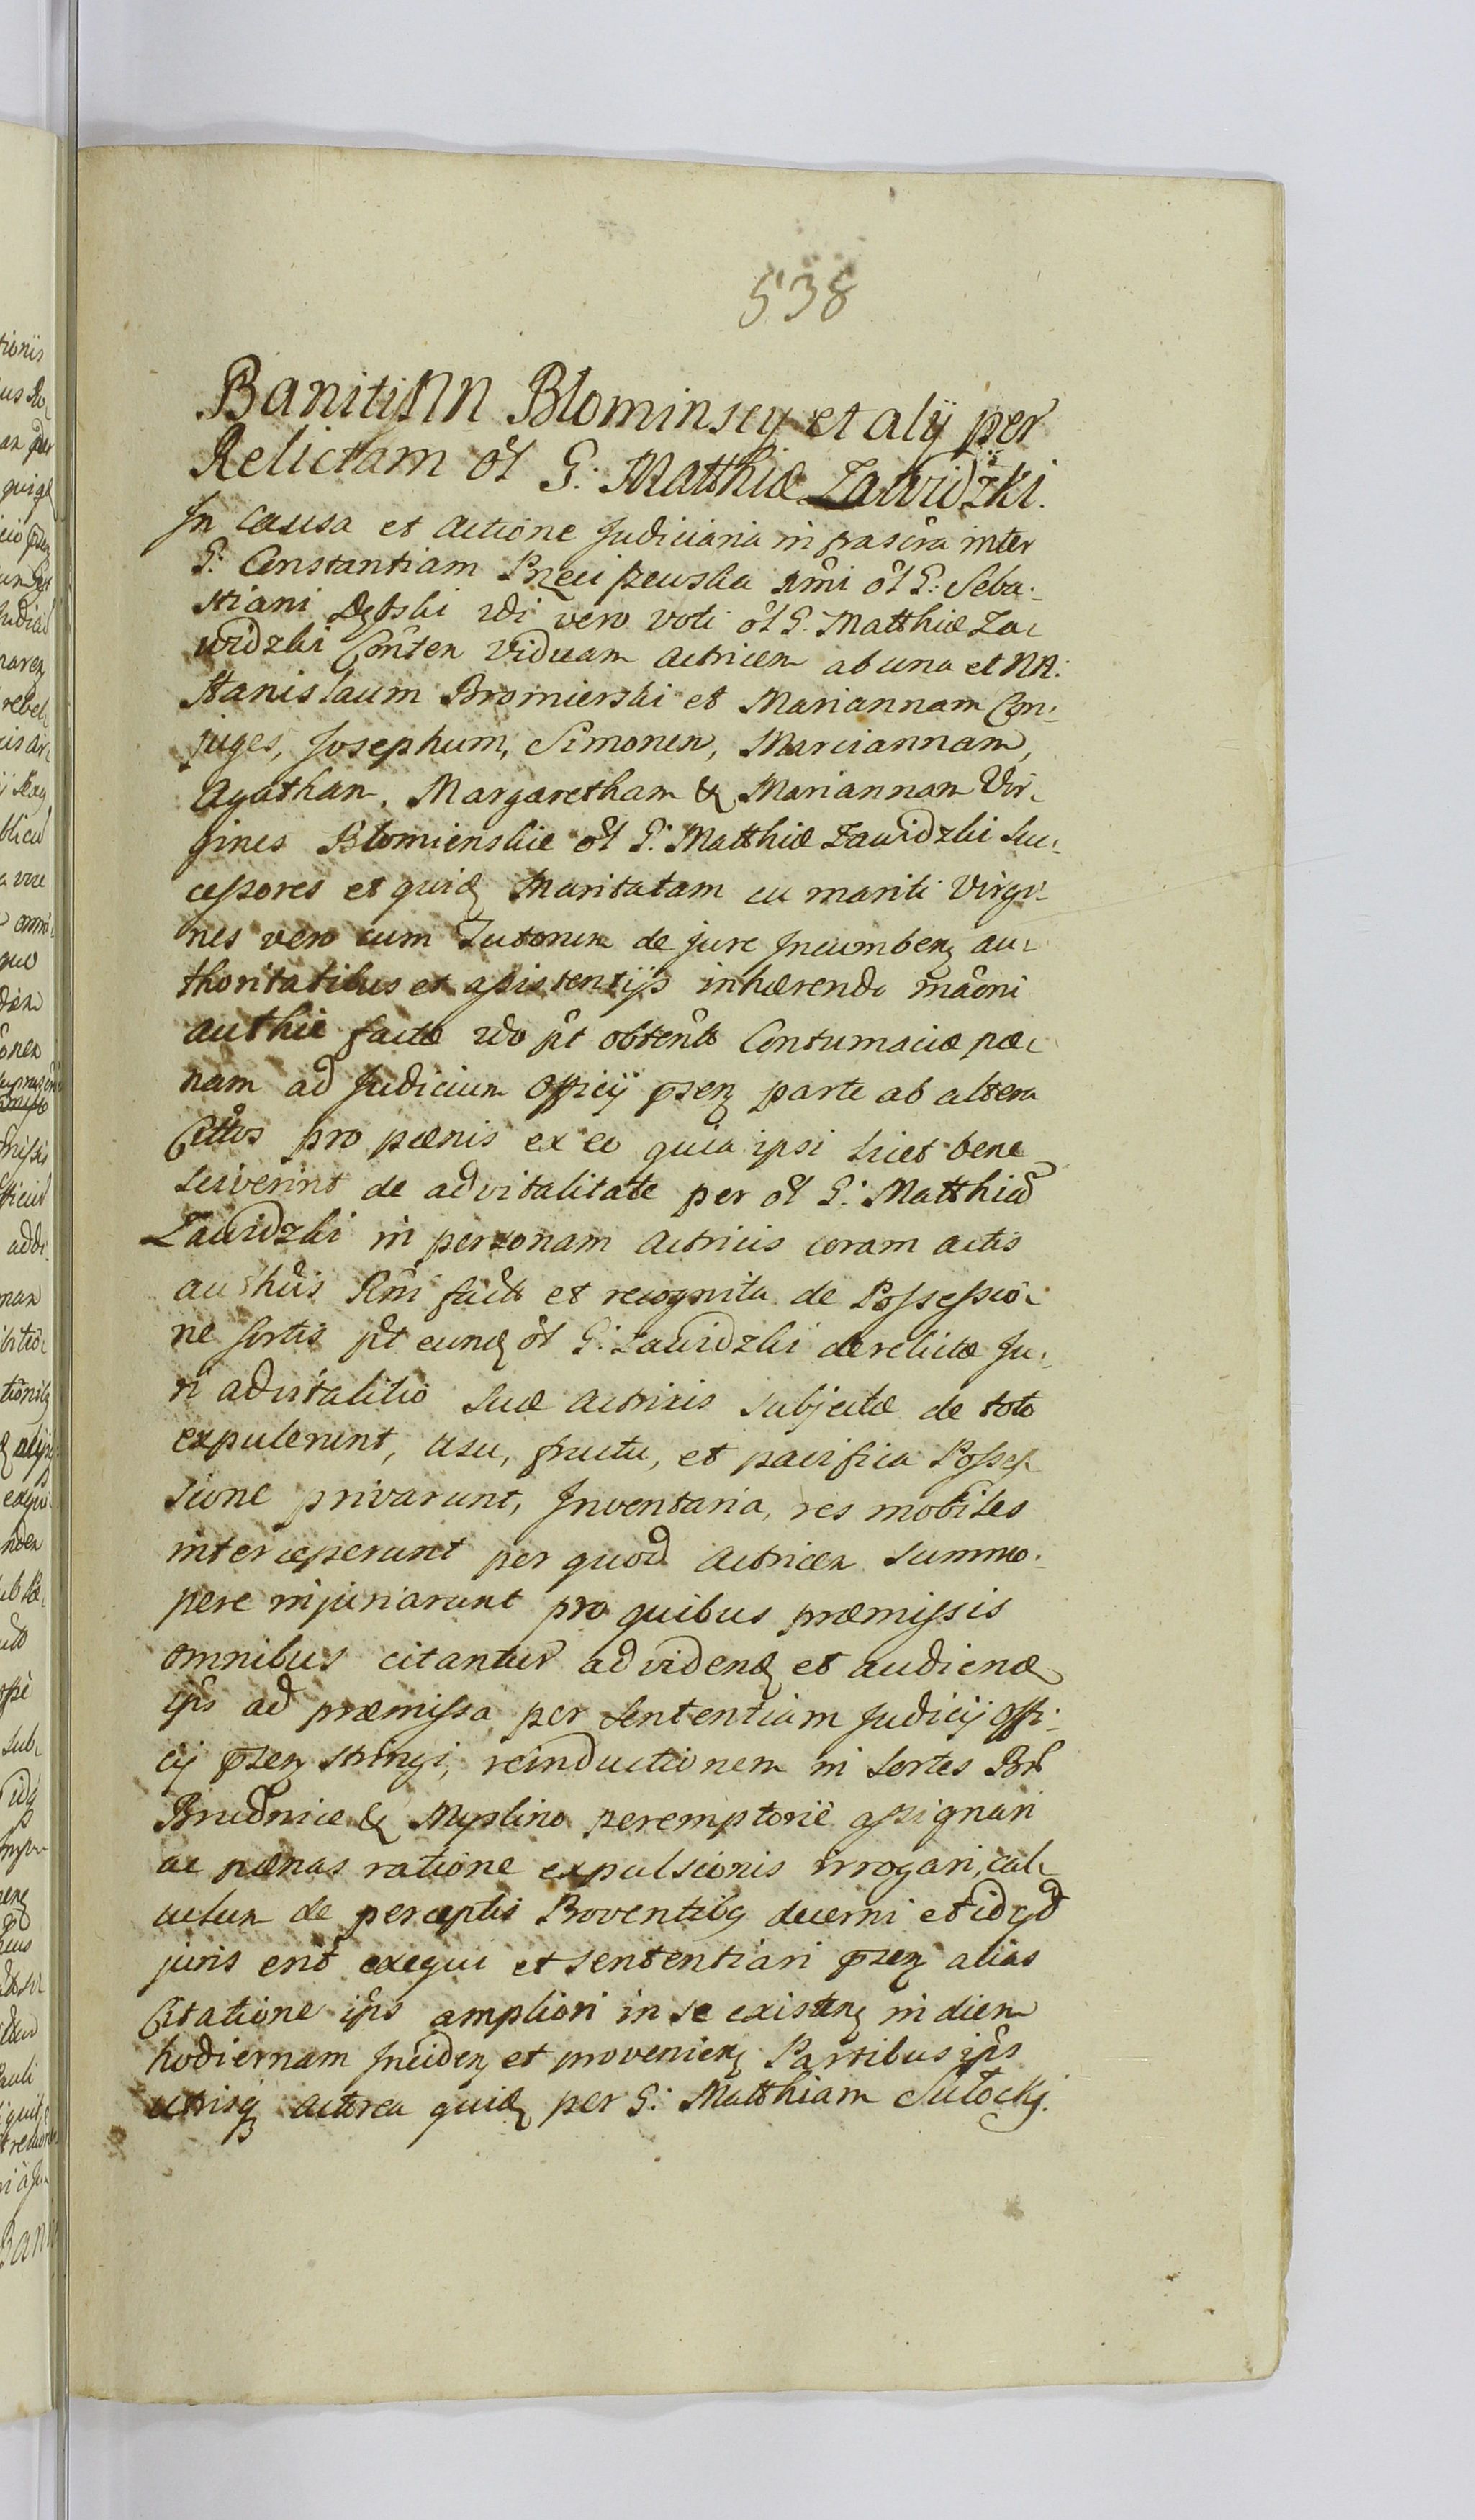 538
Baniti NN Blominscy et alij per
Relictam ol G: Matthiæ Zawidzki.
In causa et actione Judiciaria infrascra inter
G: Constantiam Przeciszewska 1mi ol G: Seba-
stiani Dębski 2di vero voti ol G: Matthiæ Za-
widzki Conten Viduam actricem ab una et NN:
Stanislaum Bromierski et Mariannam Con-
juges, Josephum, Simonem, Marciannam,
Agatham, Margaretham & Mariannam Vir-
gines Blomienskie ol G: Matthiæ Zawidzki Suc-
cessores et quid Maritatam cu mariti Virgi-
nes vero cum Tutorum de jure Incumben au-
thoritatibus et assistentijs inhærendo mãoni
authæ factæ 2do pt obtentæ Contumaciæ pæ-
nam ad Judicium Officij psen parte ab altera
Cttos pro pænis ex eo quia ipsi licet bene
sciverint de advitalitate per ol G: Matthiã
Zawidzki in personam actricis coram actis
authcis Rni facta et recognita de Possessio-
ne sortis pt eund ol G: Zawidzki derelictæ Ju-
ri advitalitio suæ actricis subjectæ de toto
expulerunt, usu, fructu, et pacifica Posses-
sione privarunt, Inventaria, res mobiles
interceperunt per quod actricem summo-
pere injuriarunt pro quibus præmissis
omnibus citantur ad vidend et audiend
ips ad præmissa per sententiam Judicij Offi-
cij psen stringi, reinductionem in sortes Br
Brudnice & Myslino peremptorie assignari
ac pænas ratione expulsionis irrogari, cal-
culum de perceptis Proventibq decerni et id qd
juris erit exequi et sententiari psen alias
Citatione ips ampliori in se existen in diem
hodiernam Inciden et provenien Partibus ips
utrisq actorea quid per G: Matthiam Sutocki.